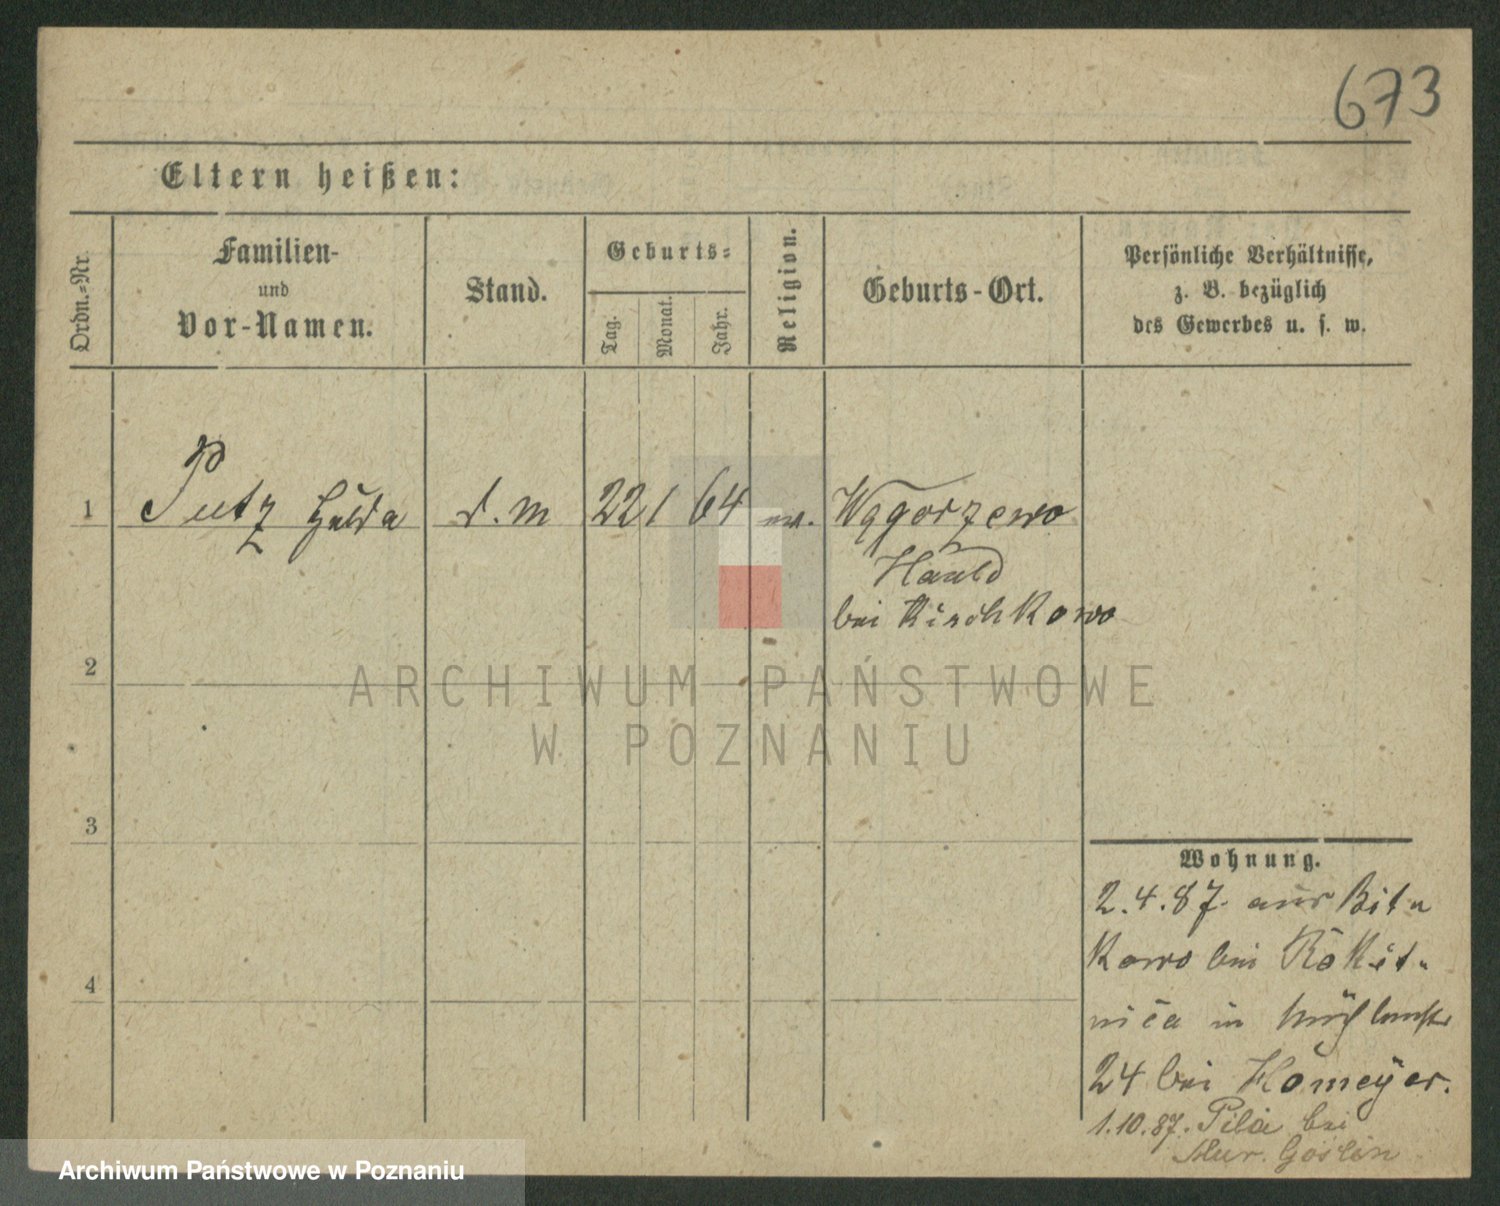 673
Eltern heißen:
Ordn.-Nr.
Familien-
und
Vor-Namen.
Stand.
Geburts-
Tag.
Monat.
Jahr.
Religion.
Geburts-Ort.
Persönliche Verhältnisse,
z. B. bezüglich
des Gewerbes u. s. w.
1 Putz Hulda d. m 22 1 64 ev. Węgorzewo
Hauld
bei Kischkowo
2
3
4
Wohnung.
2.4.87. aus Bitu
kowo bei Rokit-
nica in Mühlenstr
24 bei Homeyer.
1.10.87. Pila bei
Mur. Goslin
ARCHIWUM PAŃSTWOWE
W POZNANIU
Archiwum Państwowe w Poznaniu